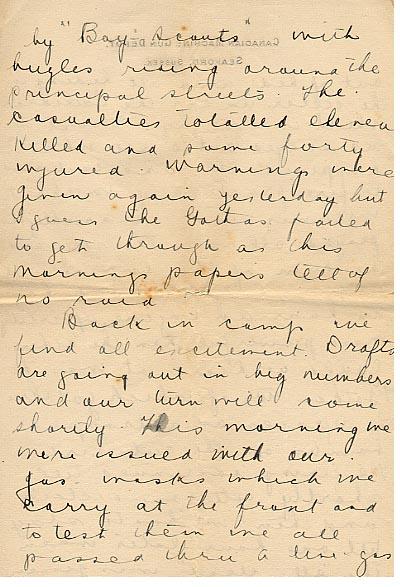 by "Boy Scouts" with
bugles riding around the
principal streets. The
casualties totalled eleven
killed and some forty
injured. Warnings were
given again yesterday but
I guess the Gothas failed
to get through as this
mornings papers tell of
no raid
Back in camp we
find all excitement. Drafts
are going out in big numbers
and our turn will come
shortly. This morning we
were issued with our
gas masks which we
carry at the front and
to test them we all
passed thru a live gas
CANADIAN MACHINE GUN DEPOT,
SEAFORD, SUSSEX